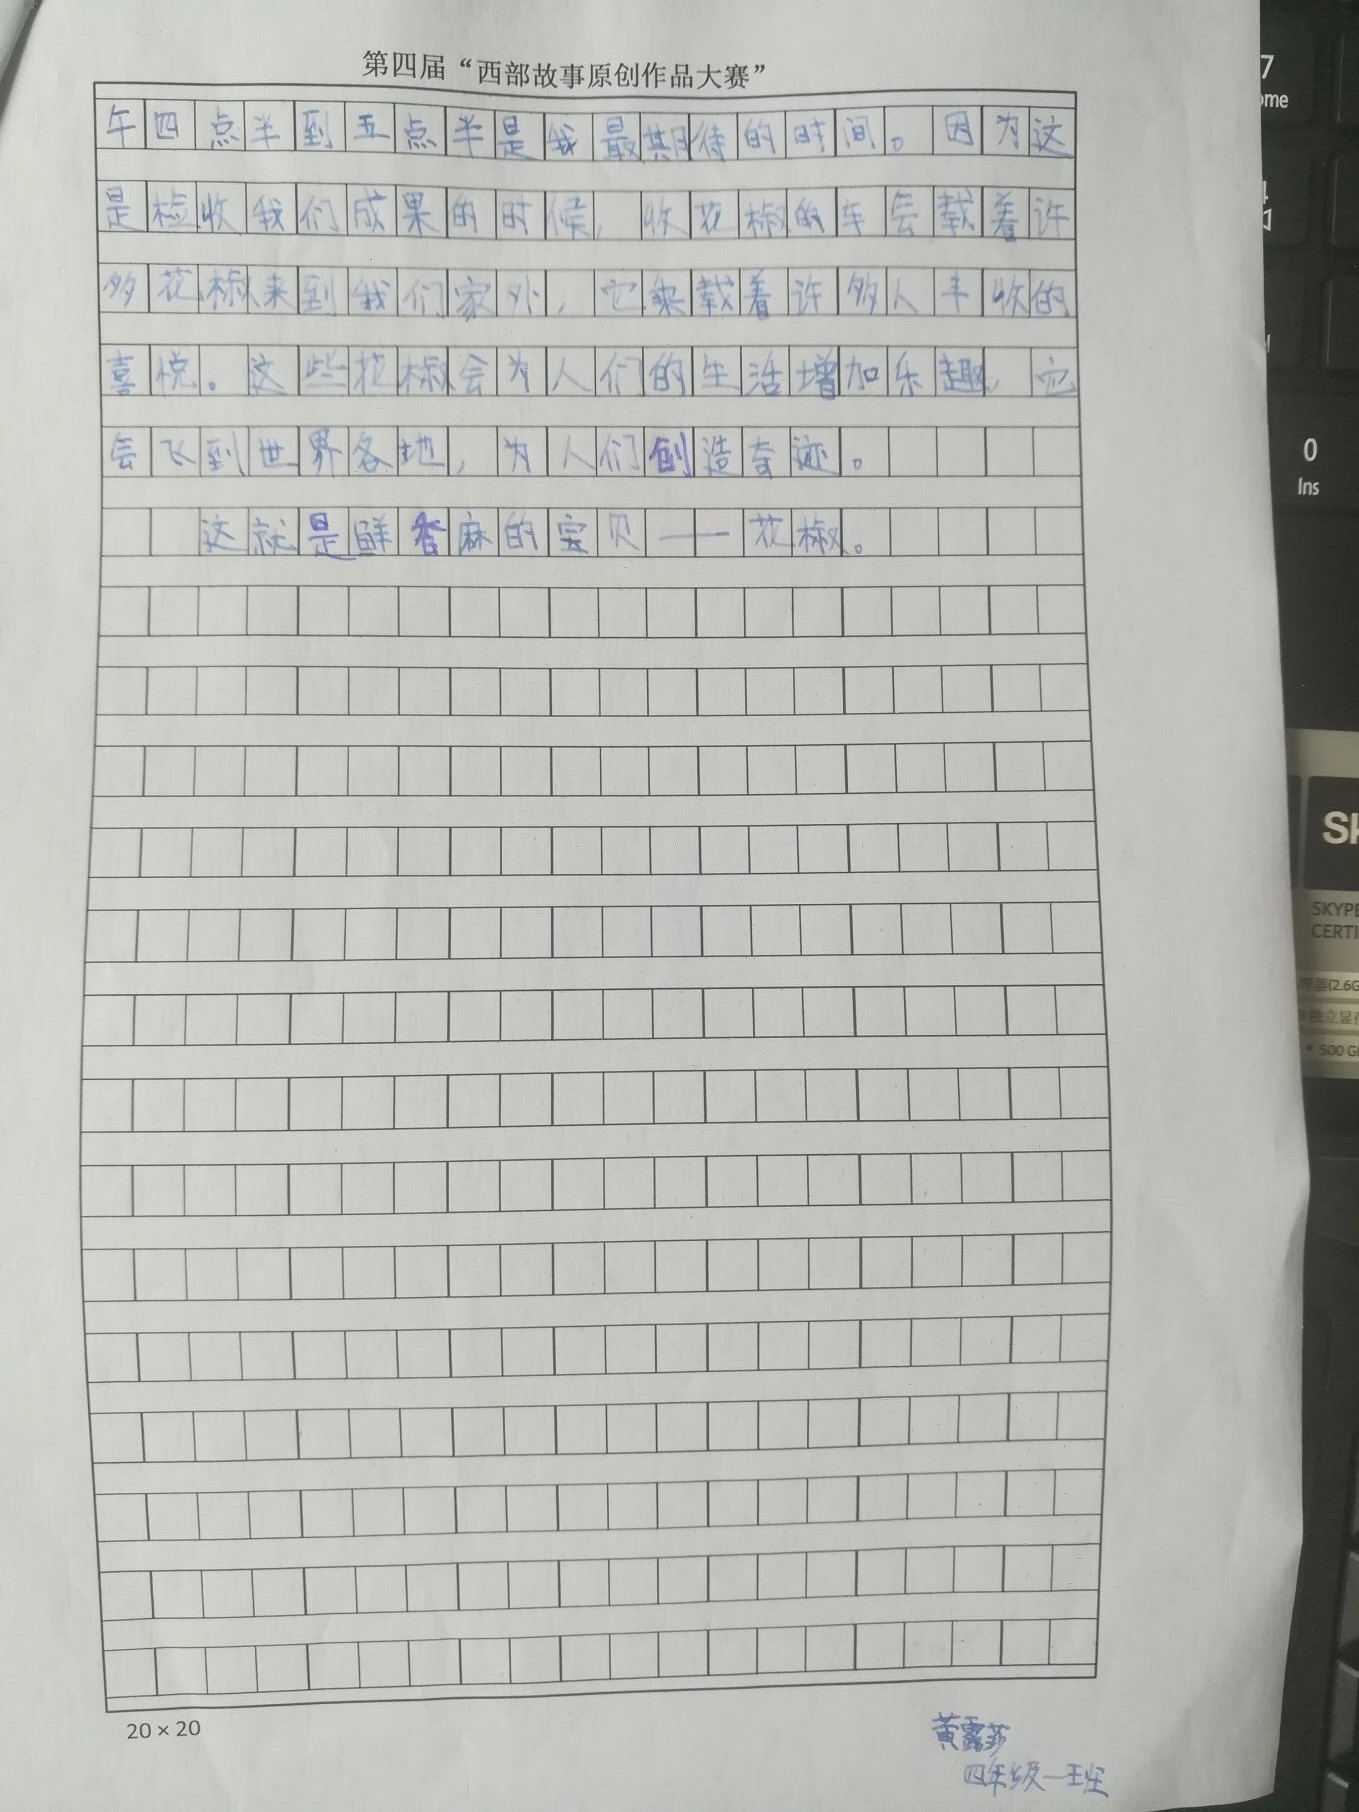 第四届“西部故事原创作品大赛”
午四点半到五点半是我最期待的时间。因为这
是检收我们成果的时候，收花椒的车会载着许
多花椒来到我们家外，它乘载着许多人丰收的
喜悦。这些花椒会为人们的生活增加乐趣，它
会飞到世界各地，为人们创造奇迹。
这就是鲜香麻的宝贝——花椒。
20×20
黄露莎
四年级一班
7
ome
0
Ins
SKYPE
CERTI
(2.6G
独立显
500 G